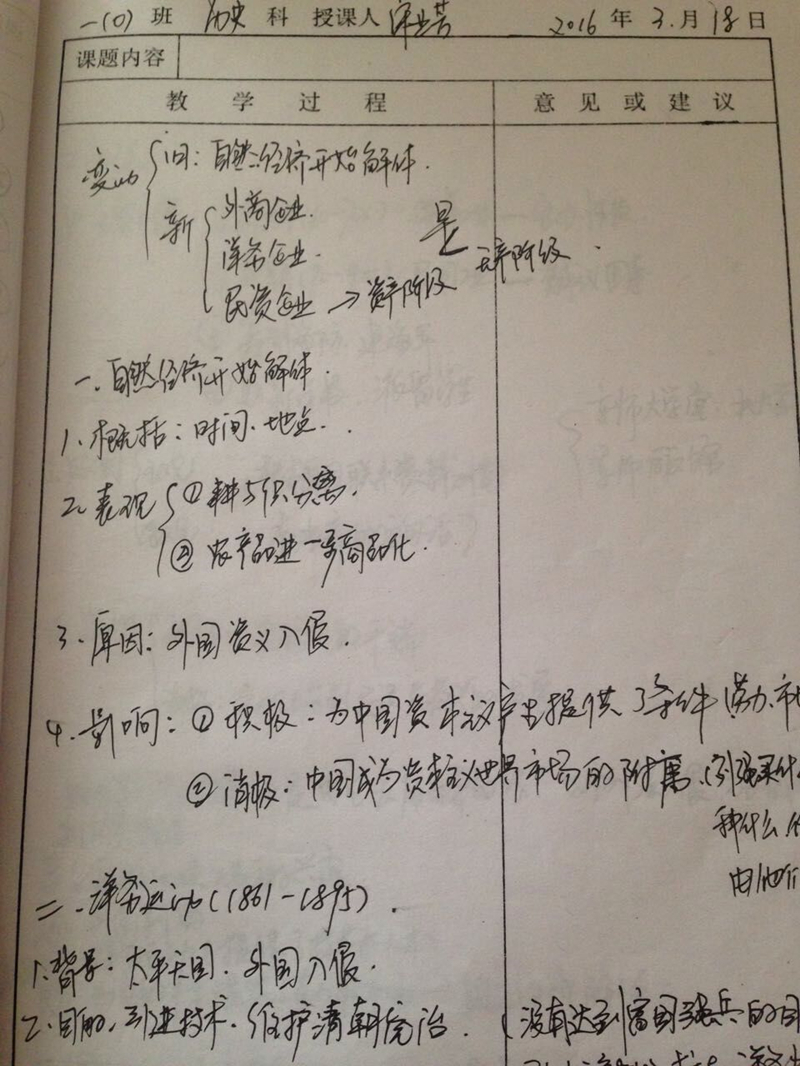 一(0)班 历史 科 授课人 2016年3.月18日
课题内容
教学过程 意见或建议
变动 旧：自然经济开始解体.
新 外商企业.
洋务企业.
民资企业→资产阶级 无产阶级.
一.自然经济开始解体.
1.概括：时间、地点.
2.表现 ①耕与织分离.
②农产品进一步商品化.
3.原因：外国资义入侵.
4.影响：①积极：为中国资本主义产生提供了条件 劳力.市
②消极：中国成为资本主义世界市场的附庸.
种什么.
由他们
二.洋务运动(1861-1895).
1.背景：太平天国.外国入侵.
2.目的.引进技术.维护清朝统治.(没有达到富国强兵的目